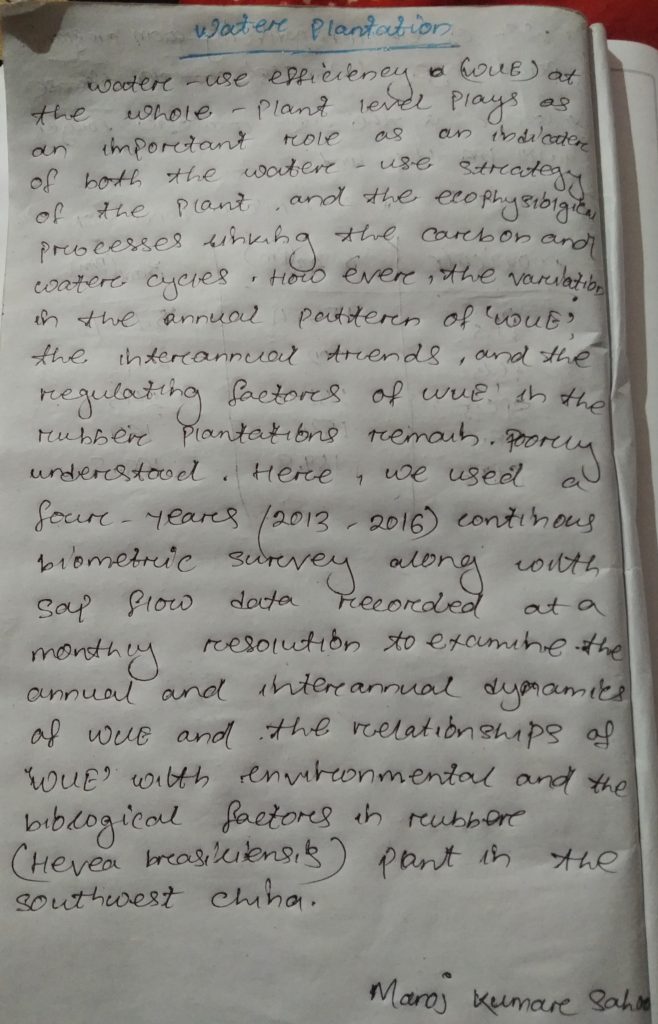 Water Plantation
water - use efficiency a (WUE) at
the whole - plant level plays as
an important role as an indicator
of both the water - use strategy
of the plant, and the ecophysiological
processes linking the carbon and
water cycles. However, the variation
in the annual pattern of 'WUE',
the interannual trends, and the
regulating factors of WUE' in the
rubber plantations remain. Poorly
understood. Here, we used a
four-years (2013 - 2016) continous
biometric survey along with
sap flow data recorded at a
monthly resolution to examine the
annual and interannual dynamics
of WUE and the relationships of
'WUE' with environmental and the
biological factors in rubber
(Hevea brasiliensis) plant in the
southwest china.
Maroj Kumar Sahoo